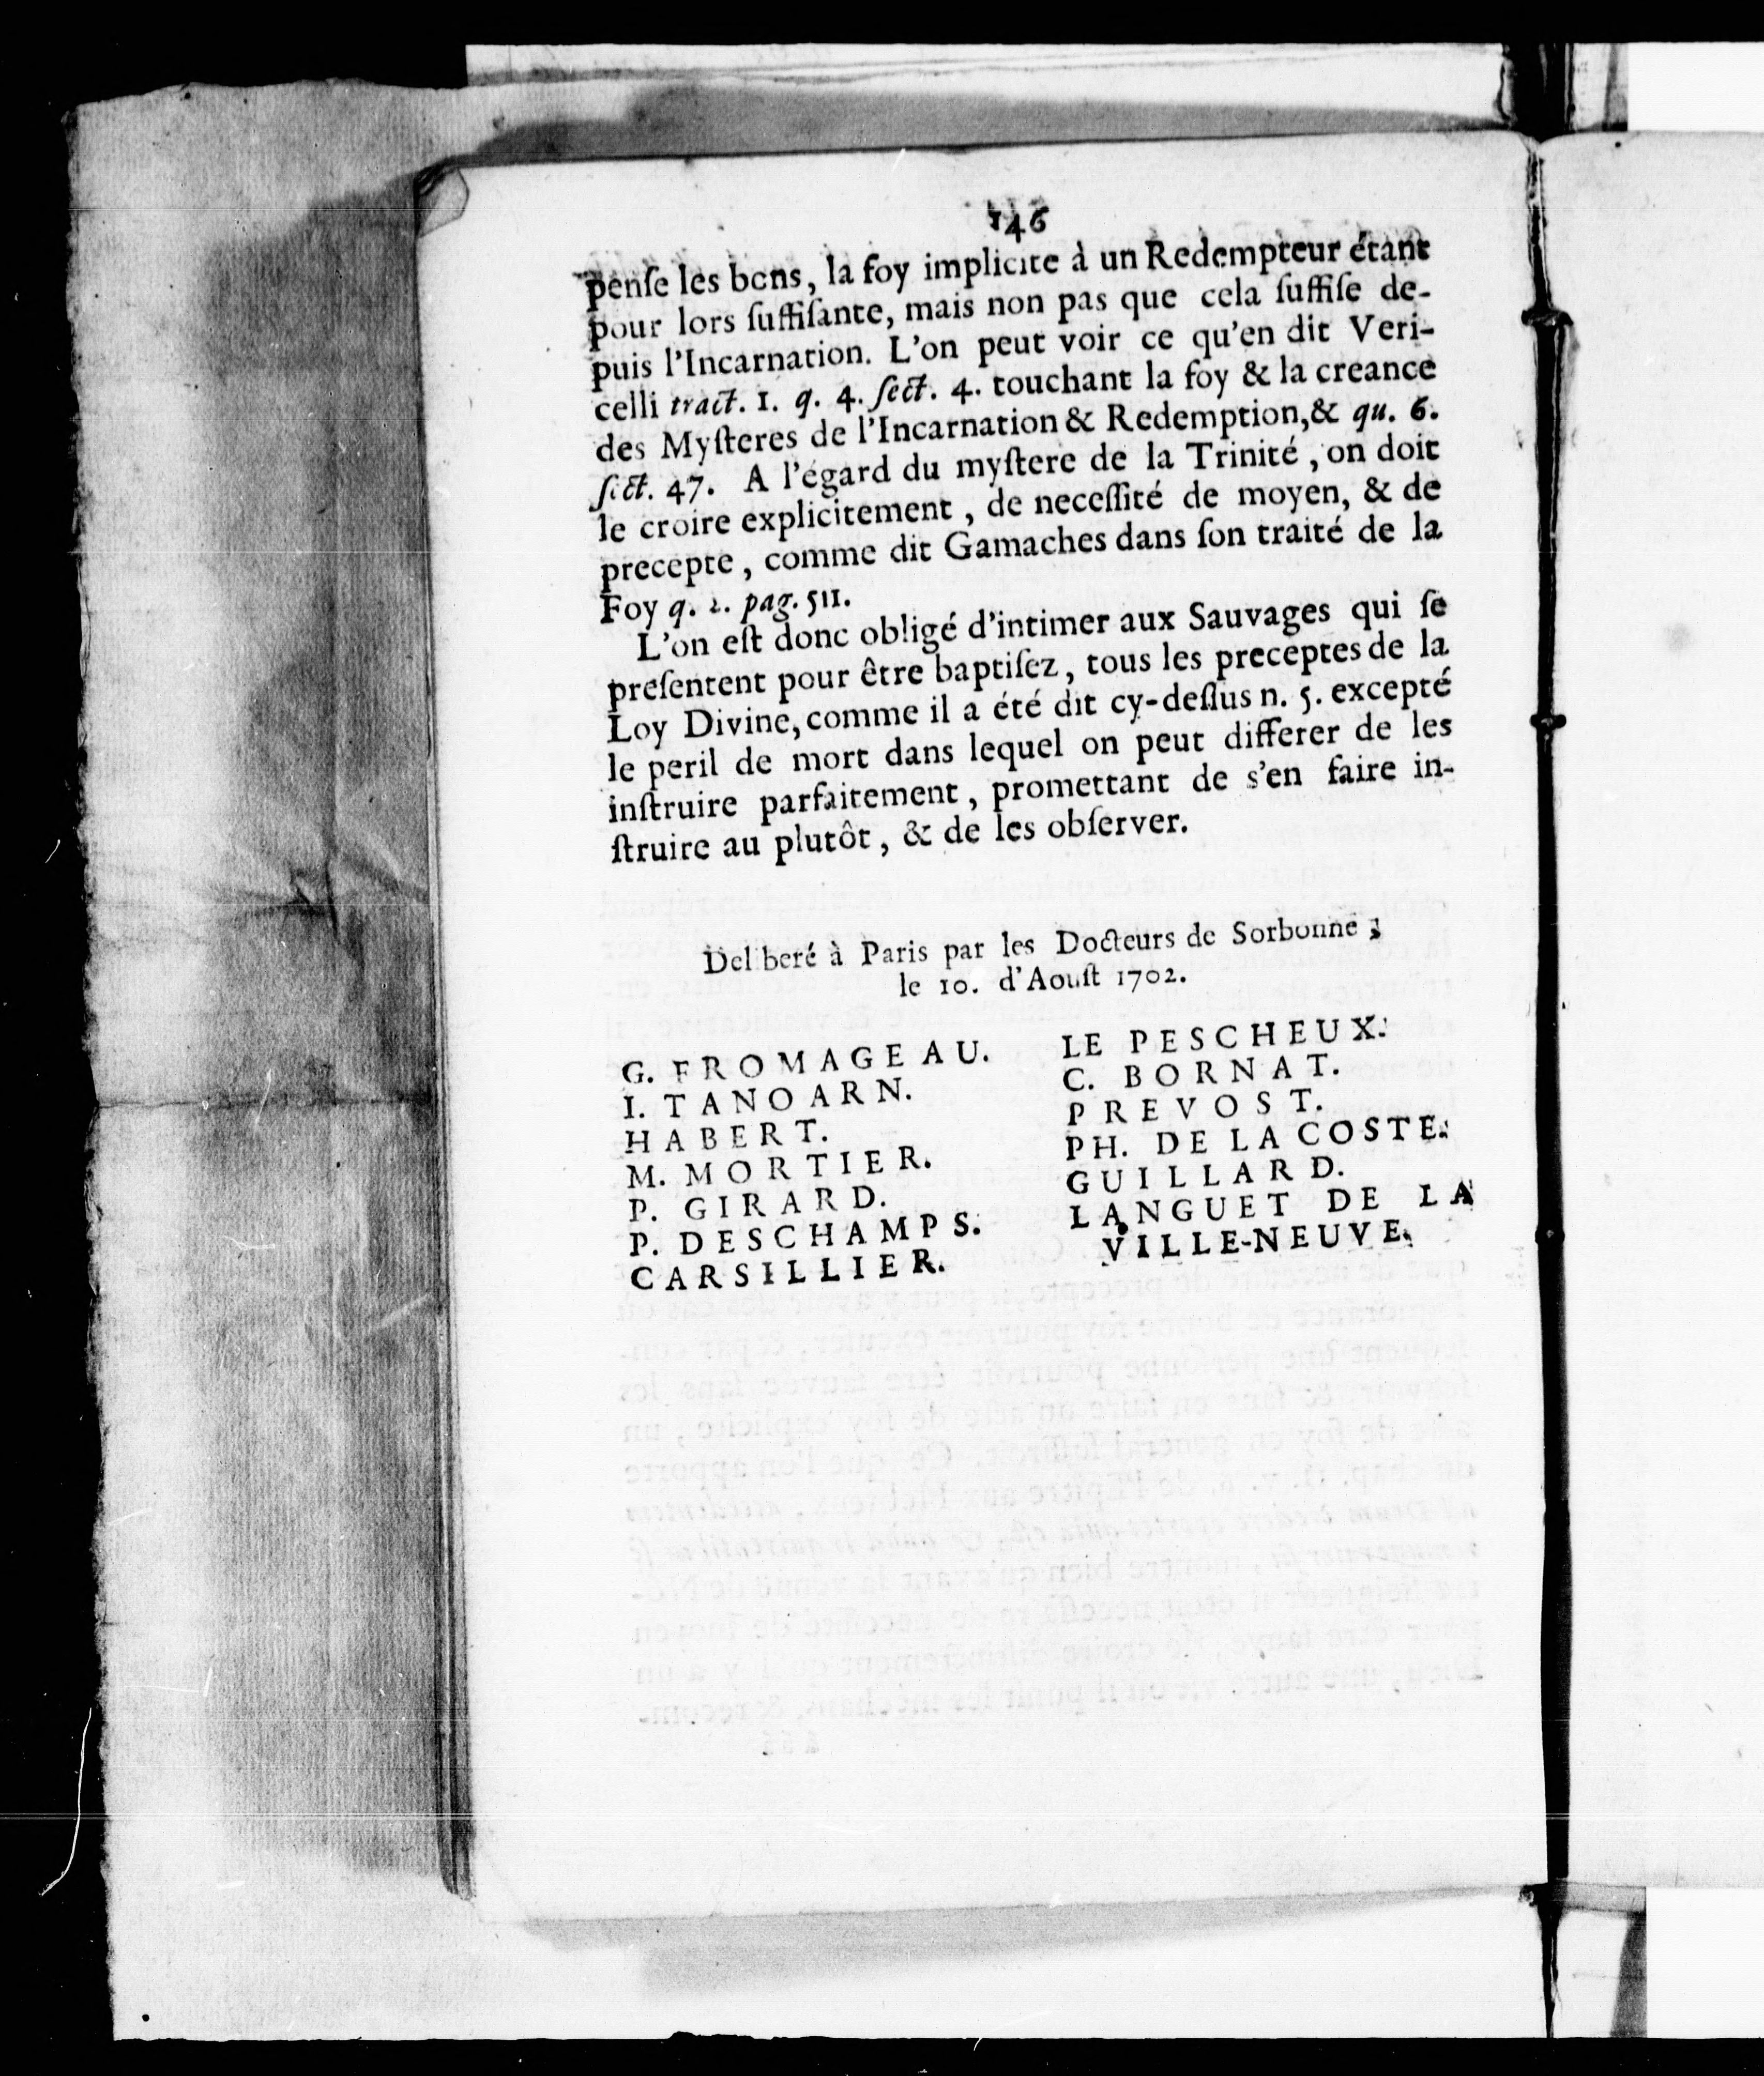 146
penſe les bons, la foy implicite à un Redempteur étant
pour lors ſuffiſante, mais non pas que cela ſuffiſe de-
puis l'Incarnation. L'on peut voir ce qu'en dit Veri-
celli tract. 1. q. 4. ſect. 4. touchant la foy & la creance
des Myſteres de l'Incarnation & Redemption, & qu. 6.
ſect. 47. A l'égard du myſtere de la Trinité, on doit
le croire explicitement, de neceſſité de moyen, & de
precepte, comme dit Gamaches dans ſon traité de la
Foy q. 2. pag. 511.
L'on eſt donc obligé d'intimer aux Sauvages qui ſe
preſentent pour être baptiſez, tous les preceptes de la
Loy Divine, comme il a été dit cy-deſſus n. 5. excepté
le peril de mort dans lequel on peut differer de les
inſtruire parfaitement, promettant de s'en faire in-
ſtruire au plutôt, & de les obſerver.
Deliberé à Paris par les Docteurs de Sorbonne;
le 10. d'Aouſt 1702.
G. FROMAGEAU.
I. TANOARN.
HABERT.
M. MORTIER.
P. GIRARD.
P. DESCHAMPS.
CARSILLIER.
LE PESCHEUX.
C. BORNAT.
PREVOST.
PH. DE LA COSTE.
GUILLARD.
LANGUET DE LA
VILLE-NEUVE.